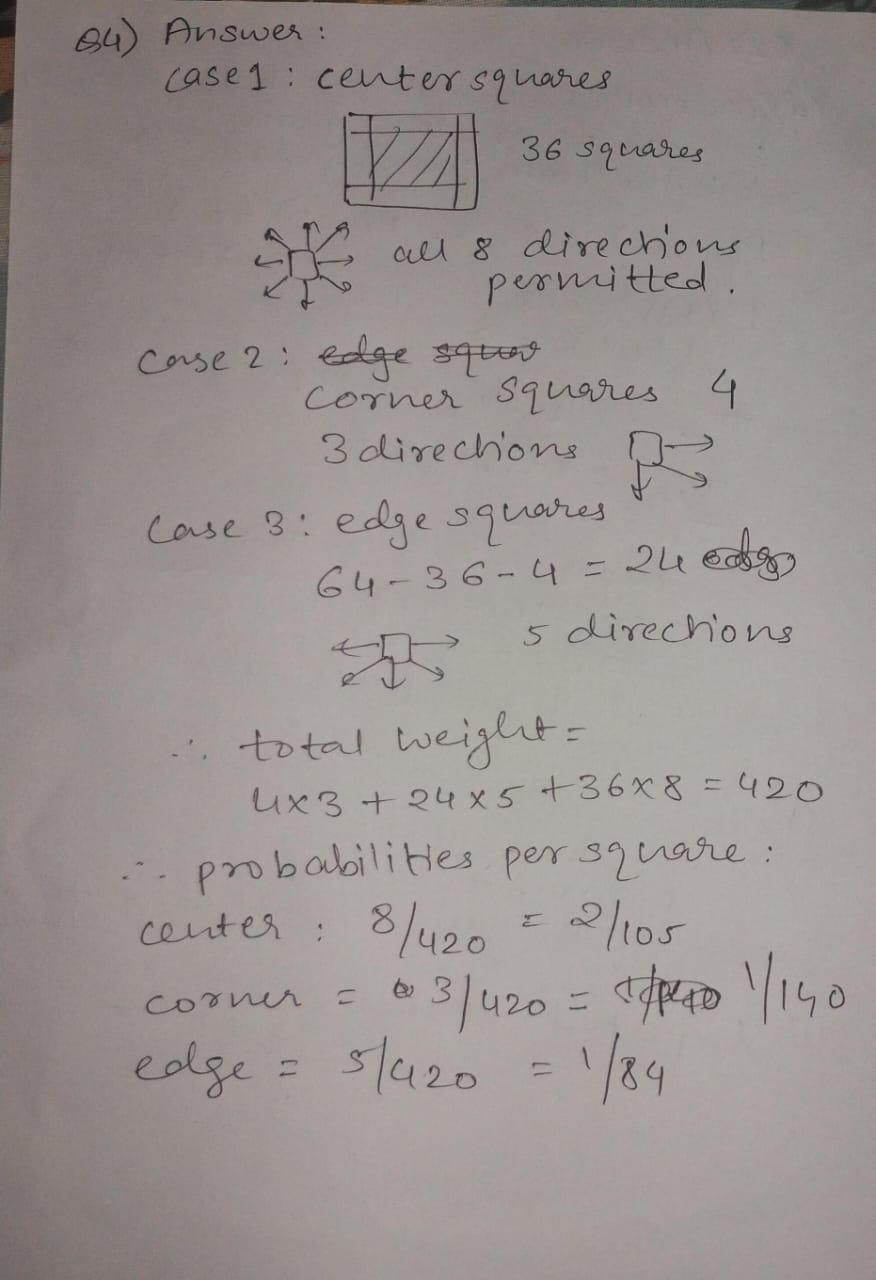 Q4) Answer :
case 1 : center squares
36 squares
all 8 directions
permitted .
Case 2 : edge squar
corner squares 4
3 directions
Case 3 : edge squares
64 - 36 - 4 = 24
5 directions
∴ total weight =
4x3 + 24x5 + 36x8 = 420
∴ probabilities per square :
center : 8/420 = 2/105
corner = 3/420 = 1/140
edge = 5/420 = 1/84